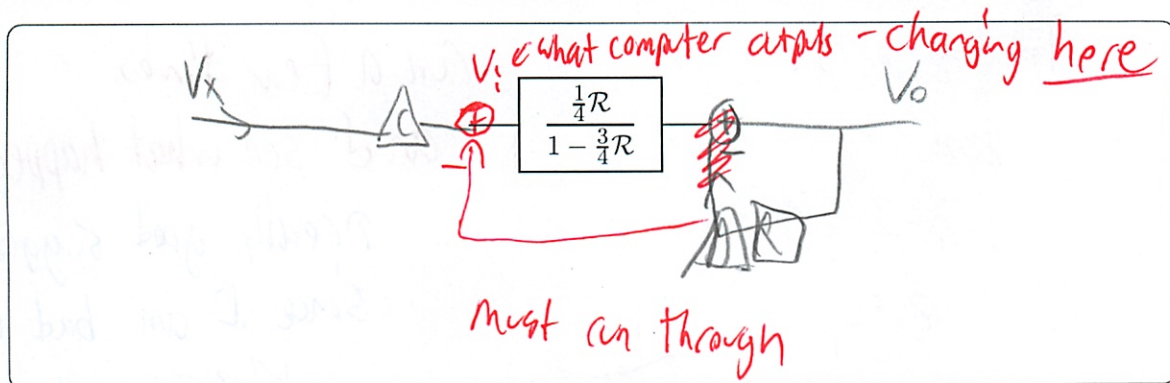 Vi ← what computer outputs - changing here
Vx
C
+
1/4 R
1 - 3/4 R
+
Vo
-
-
R
must run through